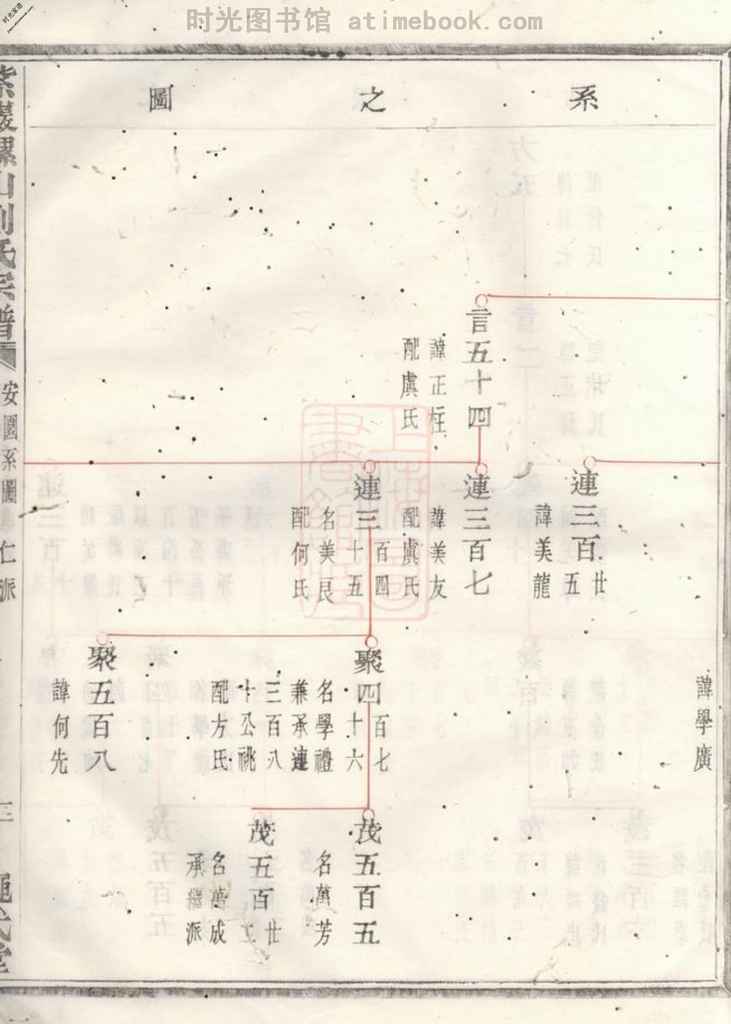 时光图书馆 atimebook.com
系之圖
言五十四
諱正枉
配虞氏
連三百廿五
諱美龍
連三百七
諱美友
配虞氏
連三百四十五
名美良
配何氏
諱學廣
聚四百七十六
名學禮
兼承連
三百八
十公祧
配方氏
聚五百八
諱何先
茂五百五
名萬芳
茂五百廿工
名萬成
承繼派
山劉氏宗譜
安園系圖
仁派
三